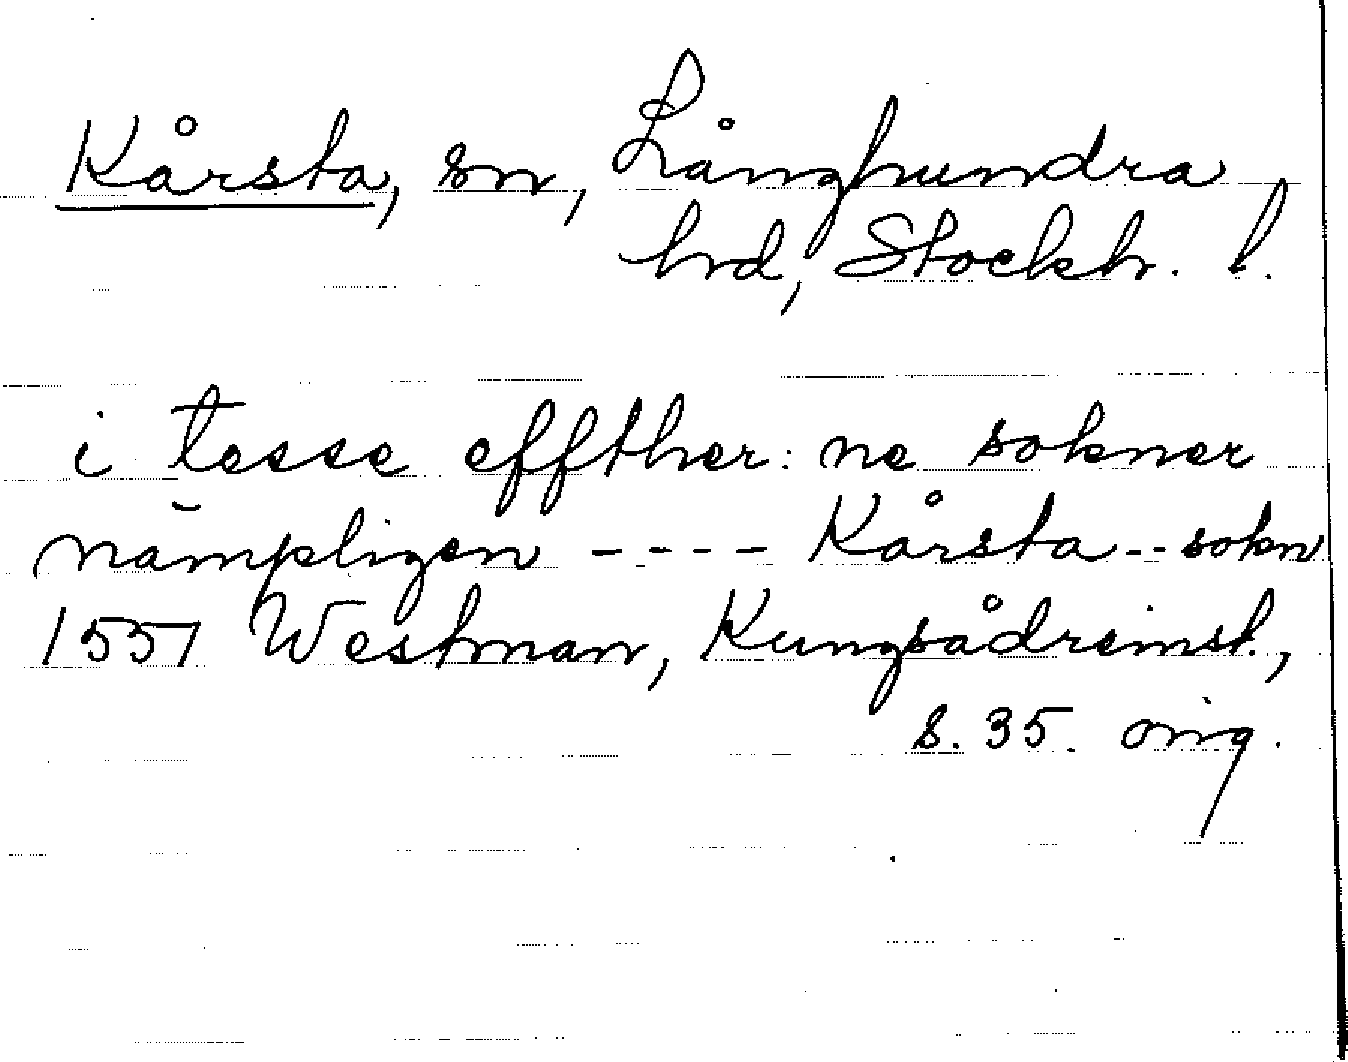 Kårsta, sn, Långhundra
hrd, Stockh. l.
i tesse effther: ne sokner
nämpligen ---- Kårsta -- sokn
1551 Westman, Kungsådreinst.,
s. 35. orig.